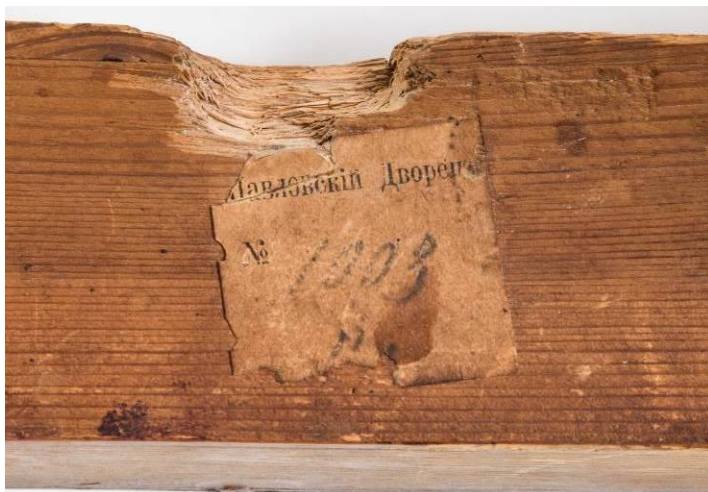 Павловскій Дворецъ
№ 1003